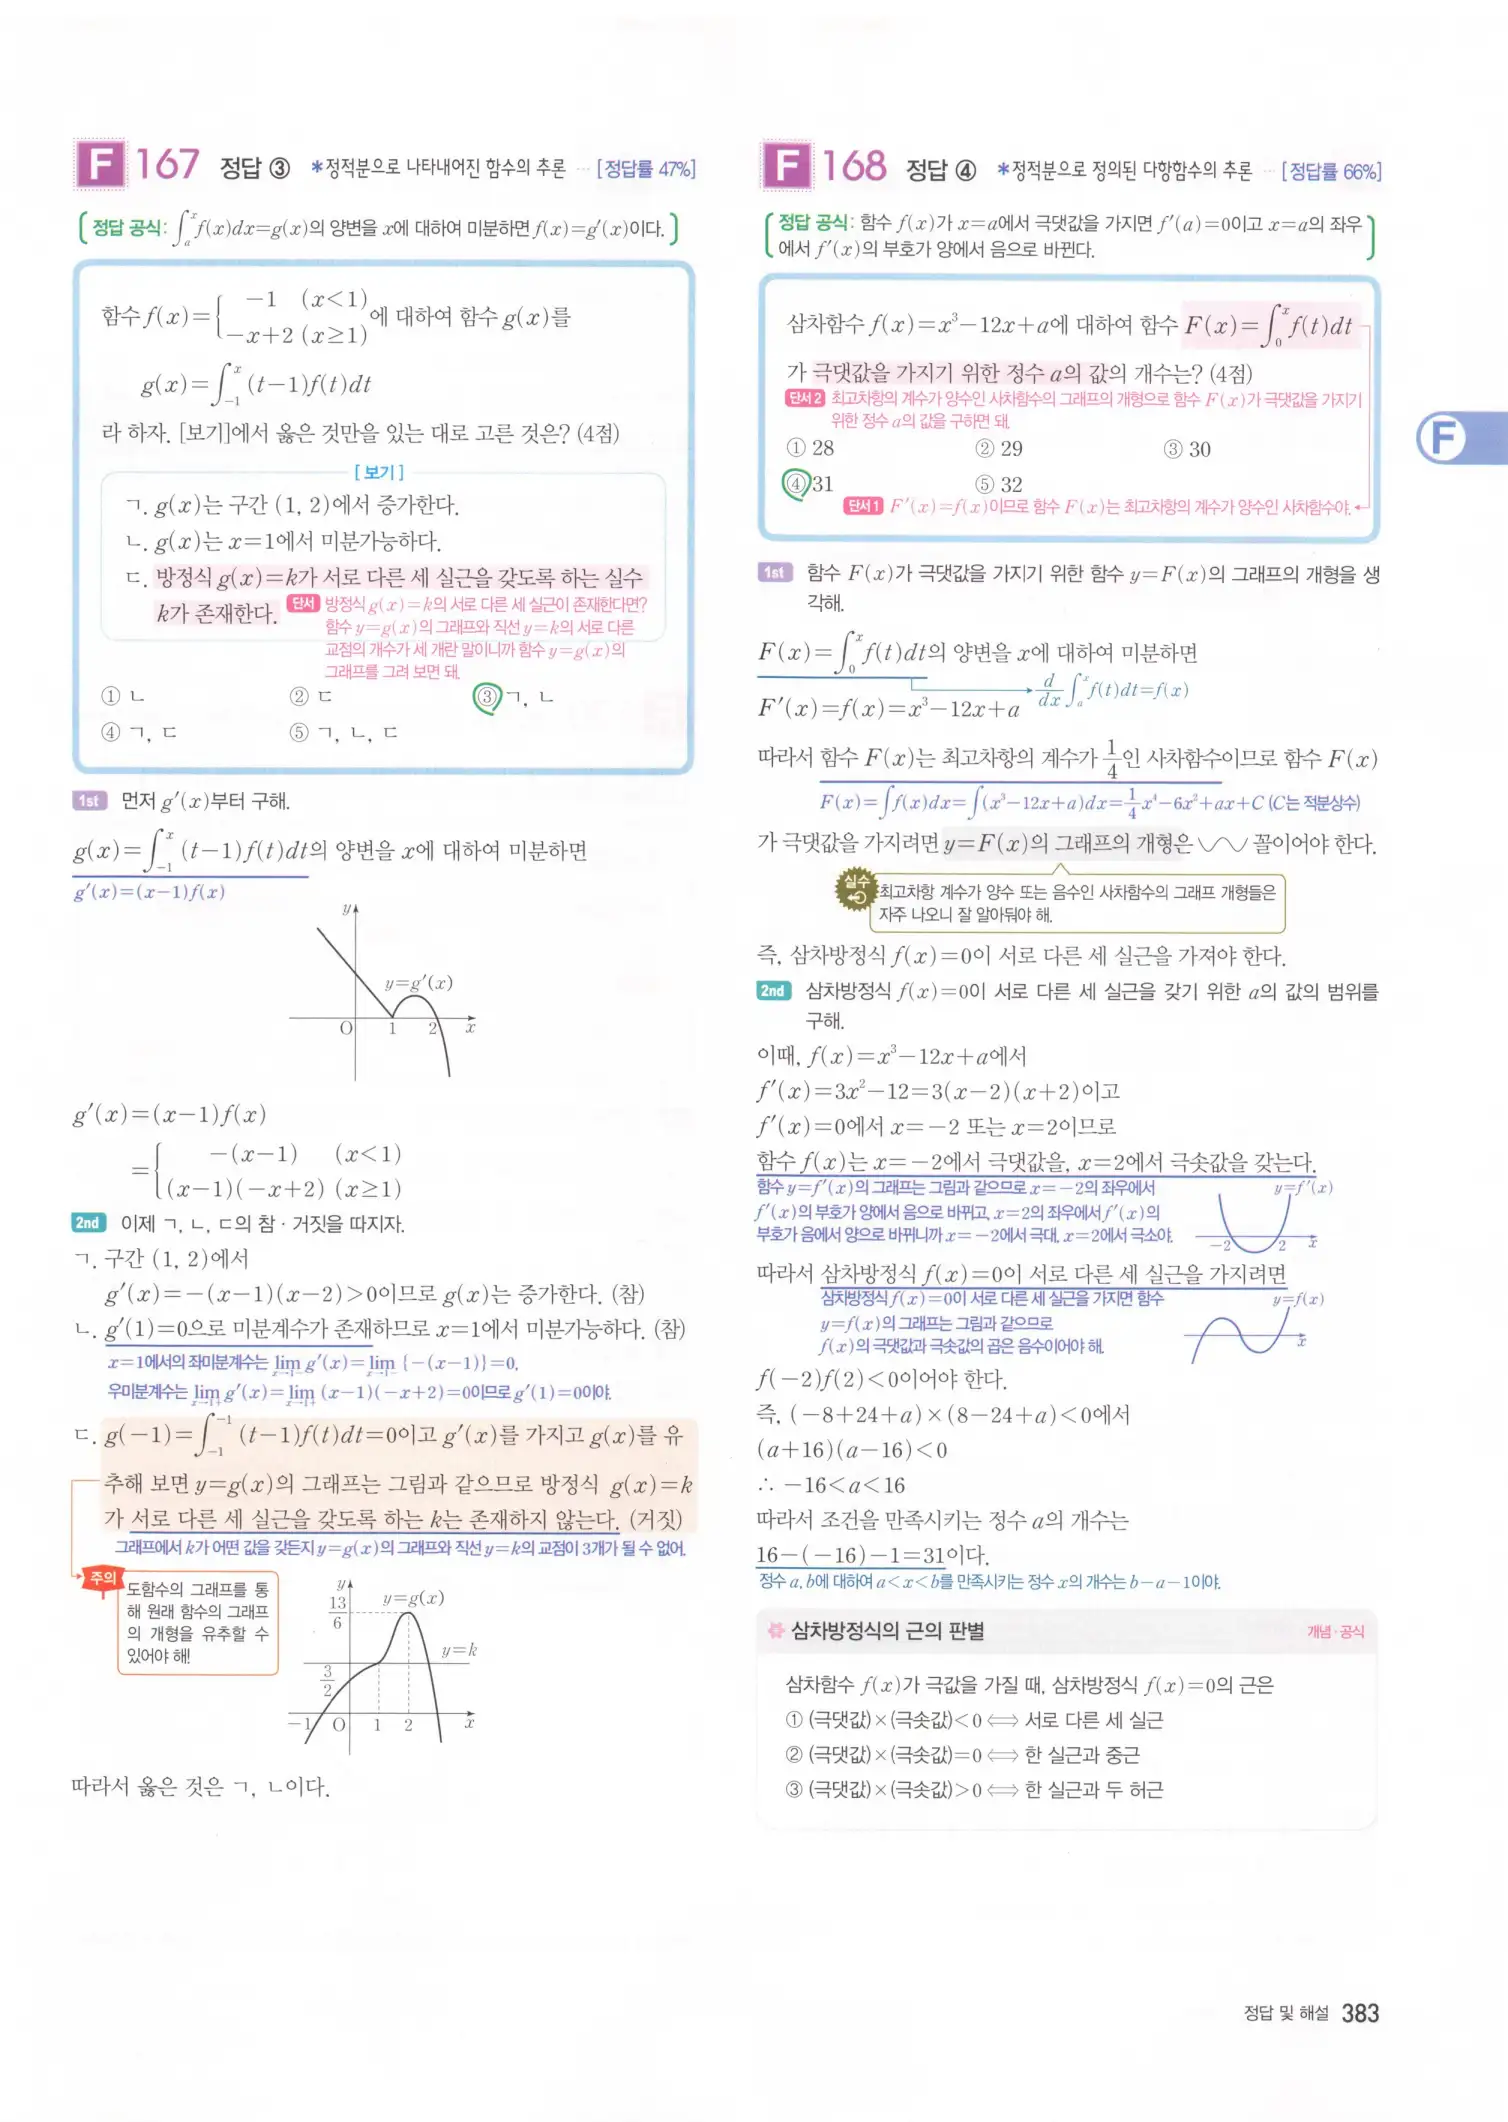 F 167 정답 ③ *정적분으로 나타내어진 함수의 추론 … [정답률 47%]
정답 공식: ∫ₐˣ f(x)dx=g(x)의 양변을 x에 대하여 미분하면 f(x)=g′(x)이다.
함수 f(x)={ −1 (x<1)
−x+2 (x≥1) 에 대하여 함수 g(x)를
g(x)=∫₋₁ˣ (t−1)f(t)dt
라 하자. [보기]에서 옳은 것만을 있는 대로 고른 것은? (4점)
[보기]
ㄱ. g(x)는 구간 (1, 2)에서 증가한다.
ㄴ. g(x)는 x=1에서 미분가능하다.
ㄷ. 방정식 g(x)=k가 서로 다른 세 실근을 갖도록 하는 실수
k가 존재한다. 단서 방정식 g(x)=k의 서로 다른 세 실근이 존재한다면?
함수 y=g(x)의 그래프와 직선 y=k의 서로 다른
교점의 개수가 세 개란 말이니까 함수 y=g(x)의
그래프를 그려 보면 돼.
① ㄴ ② ㄷ ③ ㄱ, ㄴ
④ ㄱ, ㄷ ⑤ ㄱ, ㄴ, ㄷ
1st 먼저 g′(x)부터 구해.
g(x)=∫₋₁ˣ (t−1)f(t)dt의 양변을 x에 대하여 미분하면
g′(x)=(x−1)f(x)
y
y=g′(x)
O 1 2 x
g′(x)=(x−1)f(x)
={ −(x−1) (x<1)
(x−1)(−x+2) (x≥1)
2nd 이제 ㄱ, ㄴ, ㄷ의 참·거짓을 따지자.
ㄱ. 구간 (1, 2)에서
g′(x)=−(x−1)(x−2)>0이므로 g(x)는 증가한다. (참)
ㄴ. g′(1)=0으로 미분계수가 존재하므로 x=1에서 미분가능하다. (참)
x=1에서의 좌미분계수는 lim x→1− g′(x)=lim x→1− {−(x−1)}=0,
우미분계수는 lim x→1+ g′(x)=lim x→1+ (x−1)(−x+2)=0이므로 g′(1)=0이야.
ㄷ. g(−1)=∫₋₁⁻¹ (t−1)f(t)dt=0이고 g′(x)를 가지고 g(x)를 유
추해 보면 y=g(x)의 그래프는 그림과 같으므로 방정식 g(x)=k
가 서로 다른 세 실근을 갖도록 하는 k는 존재하지 않는다. (거짓)
그래프에서 k가 어떤 값을 갖든지 y=g(x)의 그래프와 직선 y=k의 교점이 3개가 될 수 없어.
주의
도함수의 그래프를 통
해 원래 함수의 그래프
의 개형을 유추할 수
있어야 해!
y
13/6
y=g(x)
y=k
3/2
−1 O 1 2 x
따라서 옳은 것은 ㄱ, ㄴ이다.
F 168 정답 ④ *정적분으로 정의된 다항함수의 추론 … [정답률 66%]
정답 공식: 함수 f(x)가 x=a에서 극댓값을 가지면 f′(a)=0이고 x=a의 좌우
에서 f′(x)의 부호가 양에서 음으로 바뀐다.
삼차함수 f(x)=x³−12x+a에 대하여 함수 F(x)=∫₀ˣ f(t)dt
가 극댓값을 가지기 위한 정수 a의 값의 개수는? (4점)
단서2 최고차항의 계수가 양수인 사차함수의 그래프의 개형으로 함수 F(x)가 극댓값을 가지기
위한 정수 a의 값을 구하면 돼.
① 28 ② 29 ③ 30
④ 31 ⑤ 32
단서1 F′(x)=f(x)이므로 함수 F(x)는 최고차항의 계수가 양수인 사차함수야.
F
1st 함수 F(x)가 극댓값을 가지기 위한 함수 y=F(x)의 그래프의 개형을 생
각해.
F(x)=∫₀ˣ f(t)dt의 양변을 x에 대하여 미분하면
F′(x)=f(x)=x³−12x+a d/dx ∫ₐˣ f(t)dt=f(x)
따라서 함수 F(x)는 최고차항의 계수가 1/4인 사차함수이므로 함수 F(x)
F(x)=∫f(x)dx=∫(x³−12x+a)dx=1/4x⁴−6x²+ax+C (C는 적분상수)
가 극댓값을 가지려면 y=F(x)의 그래프의 개형은 꼴이어야 한다.
실수
최고차항 계수가 양수 또는 음수인 사차함수의 그래프 개형들은
자주 나오니 잘 알아둬야 해.
즉, 삼차방정식 f(x)=0이 서로 다른 세 실근을 가져야 한다.
2nd 삼차방정식 f(x)=0이 서로 다른 세 실근을 갖기 위한 a의 값의 범위를
구해.
이때, f(x)=x³−12x+a에서
f′(x)=3x²−12=3(x−2)(x+2)이고
f′(x)=0에서 x=−2 또는 x=2이므로
함수 f(x)는 x=−2에서 극댓값을, x=2에서 극솟값을 갖는다.
함수 y=f′(x)의 그래프는 그림과 같으므로 x=−2의 좌우에서
f′(x)의 부호가 양에서 음으로 바뀌고, x=2의 좌우에서 f′(x)의
부호가 음에서 양으로 바뀌니까 x=−2에서 극대, x=2에서 극소야.
y=f′(x)
−2 2 x
따라서 삼차방정식 f(x)=0이 서로 다른 세 실근을 가지려면
삼차방정식 f(x)=0이 서로 다른 세 실근을 가지면 함수
y=f(x)의 그래프는 그림과 같으므로
f(x)의 극댓값과 극솟값의 곱은 음수이어야 해.
y=f(x)
x
f(−2)f(2)<0이어야 한다.
즉, (−8+24+a)×(8−24+a)<0에서
(a+16)(a−16)<0
∴ −16<a<16
따라서 조건을 만족시키는 정수 a의 개수는
16−(−16)−1=31이다.
정수 a, b에 대하여 a<x<b를 만족시키는 정수 x의 개수는 b−a−1이야.
삼차방정식의 근의 판별 개념·공식
삼차함수 f(x)가 극값을 가질 때, 삼차방정식 f(x)=0의 근은
① (극댓값)×(극솟값)<0 ⟺ 서로 다른 세 실근
② (극댓값)×(극솟값)=0 ⟺ 한 실근과 중근
③ (극댓값)×(극솟값)>0 ⟺ 한 실근과 두 허근
정답 및 해설 383